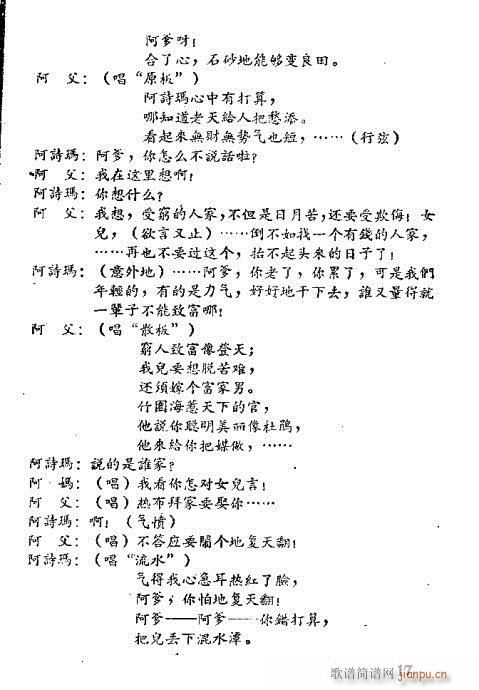 阿爹呀!
合了心，石砂地能够变良田。
阿　父：（唱“原板”）
阿詩瑪心中有打算，
哪知道老天給人把愁添。
看起來無財無势气也短，……（行弦）
阿詩瑪：阿爹，你怎么不說話啦?
阿　父：我在这里想啊!
阿詩瑪：你想什么?
阿　父：我想，受窮的人家，不但是日月苦，还要受欺侮! 女
兒，（欲言又止）……倒不如找一个有錢的人家，
……再也不要过这个，抬不起头来的日子了!
阿詩瑪：（意外地）……阿爹，你老了，你累了，可是我們
年輕的，有的是力气，好好地干下去，誰又量得就
一輩子不能致富哪!
阿　父：（唱“散板”）
窮人致富像登天;
我兒要想脫苦难，
还須嫁个富家男。
竹园海惹天下的官，
他說你聪明美丽像杜鹃，
他来給你把媒做，……
阿詩瑪：說的是誰家?
阿　媽：（唱）我看你怎对女兒言!
阿　父：（唱）热布拜家要娶你……
阿詩瑪：啊!（气憤）
阿　父：（唱）不答应要鬧个地复天翻!
阿詩瑪：（唱“流水”）
气得我心急耳热紅了臉，
阿爹，你怕地复天翻!
阿爹——阿爹——你錯打算，
把兒丢下混水潭。
17
歌谱简谱网
jianpu.cn